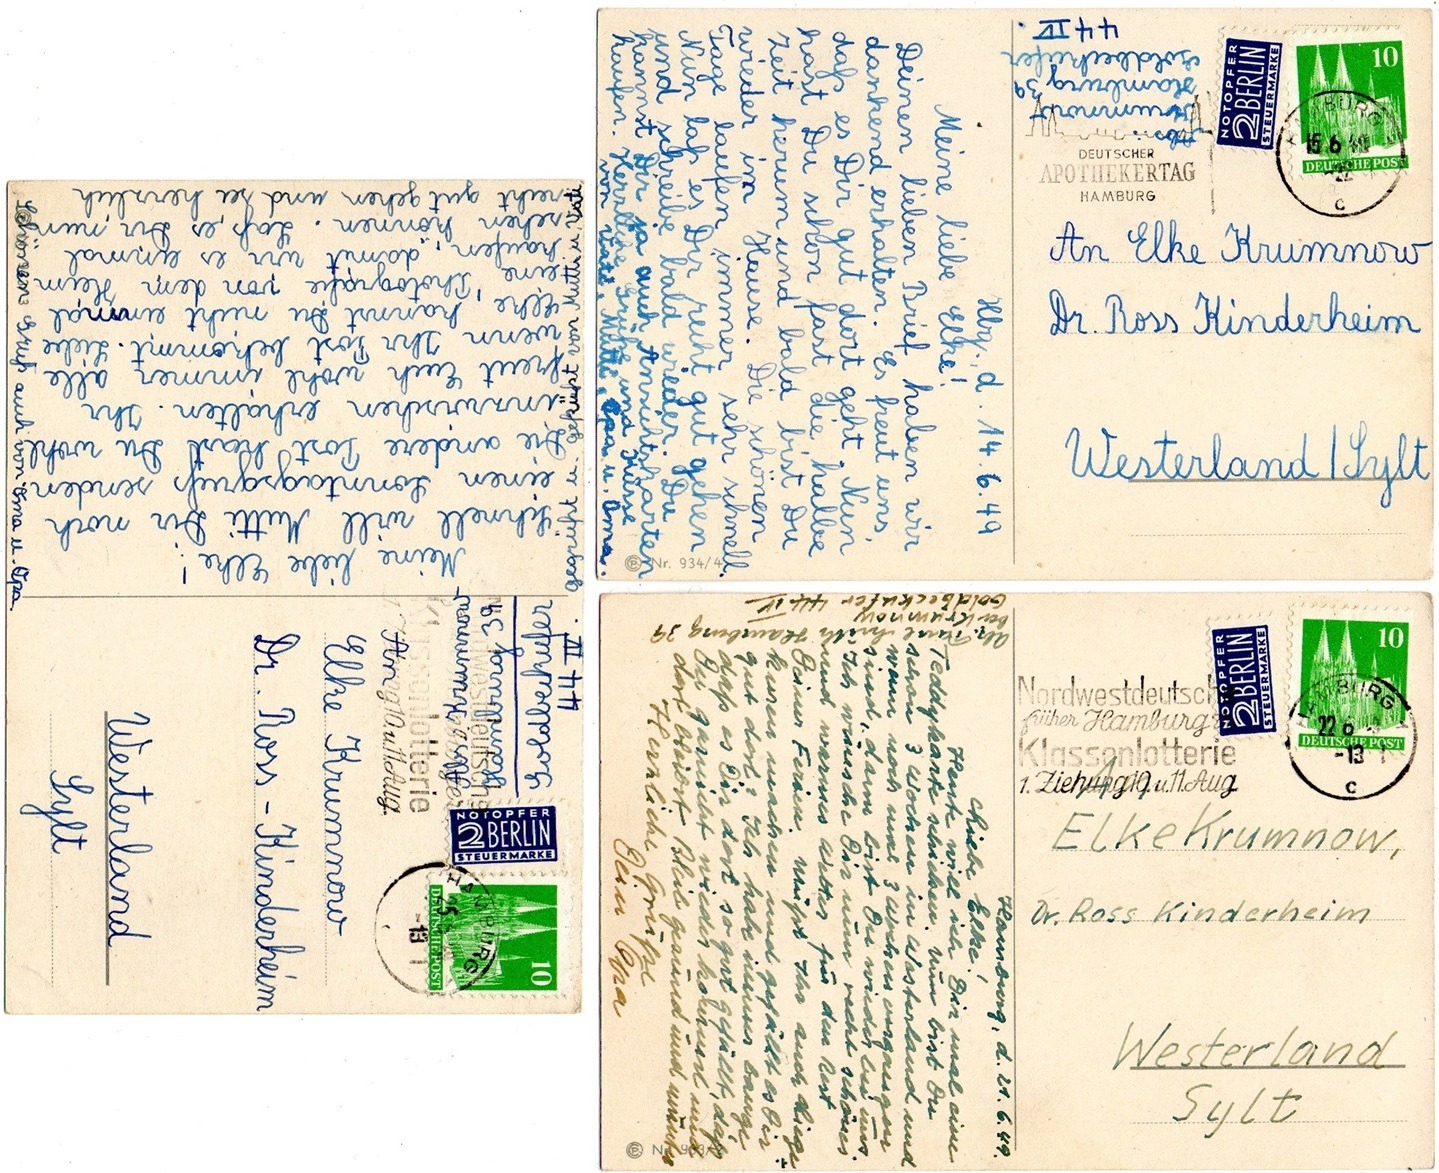 Meine liebe Elke!
Schnell will Mutti Dir noch
einen Sonntagsgruß senden
Die andere Post hast Du wohl
inzwischen erhalten. Ihr
freut Euch wohl immer alle
wenn Ihr Post bekommt. Liebe
Elke, kannst Du nicht einmal
eine Photografie von dem Heim
kaufen, damit wir es einmal
sehen können. Laß es Dir nun
recht gut gehen und sei herzlich
gegrüßt u. geküßt von Mutti u. Vati
Schönen Gruß auch von Oma u. Opa
Krumnow
Hamburg 39
Goldbekufer
44 IV.
Klassenlotterie
NOTOPFER
2 BERLIN
STEUERMARKE
10
DEUTSCHE POST
HAMBURG
-13
An
Elke Krumnow
Dr. Ross-Kinderheim
Westerland
Sylt
Hbg., d. 14.6.49
Meine liebe Elke!
Deinen lieben Brief haben wir
dankend erhalten. Es freut uns,
daß es Dir gut dort geht. Nun
hast Du schon fast die halbe
Zeit herum und bald bist Du
wieder im Hause. Die schönen
Tage laufen immer sehr schnell.
Nun laß es Dir recht gut gehen
und schreibe bald wieder. Du
kannst Dir ja auch Ansichtskarten
kaufen. Herzliche Grüße und Küsse
von Vati, Mutti, Opa u. Oma.
Nr. 934/4
Krumnow
Hamburg 39
Goldbekufer
44 IV.
DEUTSCHER
APOTHEKERTAG
HAMBURG
NOTOPFER
2 BERLIN
STEUERMARKE
10
DEUTSCHE POST
HAMBURG
15 6
c
An Elke Krumnow
Dr. Ross Kinderheim
Westerland/Sylt
Hamburg, d. 21.6.49.
Liebe Elke!
Heute will ich Dir mal eine
Teddykarte schicken. Nun bist Du
schon 3 Wochen in Westerland und
wenn noch mal 3 Wochen vergangen
sind, dann bist Du wieder bei uns.
Ich wünsche Dir nun recht schönes
und warmes Wetter für den Rest
Deiner Ferien. Mögt Ihr auch
machen und gefällt es Dir
gut dort? Ich habe immer bange
daß es Dir dort so gut gefällt, daß
Du gar nicht wieder kommst und
dort bleibst. Bleib gesund und
Herzliche Grüße
Dein Opa
Hamburg 39
bei Krumnow
Goldbeckufer 44 IV
Nordwestdeutsch
früher Hamburger
Klassenlotterie
1. Ziehung 10. u. 11. Aug.
NOTOPFER
2 BERLIN
STEUERMARKE
10
DEUTSCHE POST
HAMBURG
22 6
-13
c
Elke Krumnow,
Dr. Ross Kinderheim
Westerland
Sylt